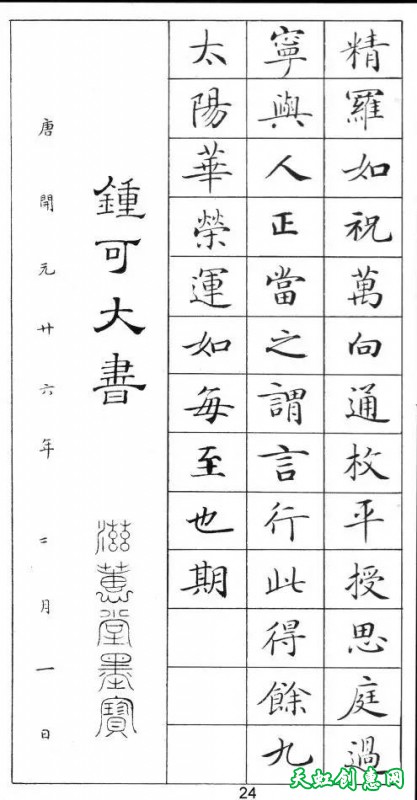 精羅如祝萬向通枚平授思庭過
寧與人正當之謂言行此得餘九
太陽華榮運如每至也期
鍾可大書
滋蕙堂墨寶
唐開元廿六年二月一日
24
天虹创惠网